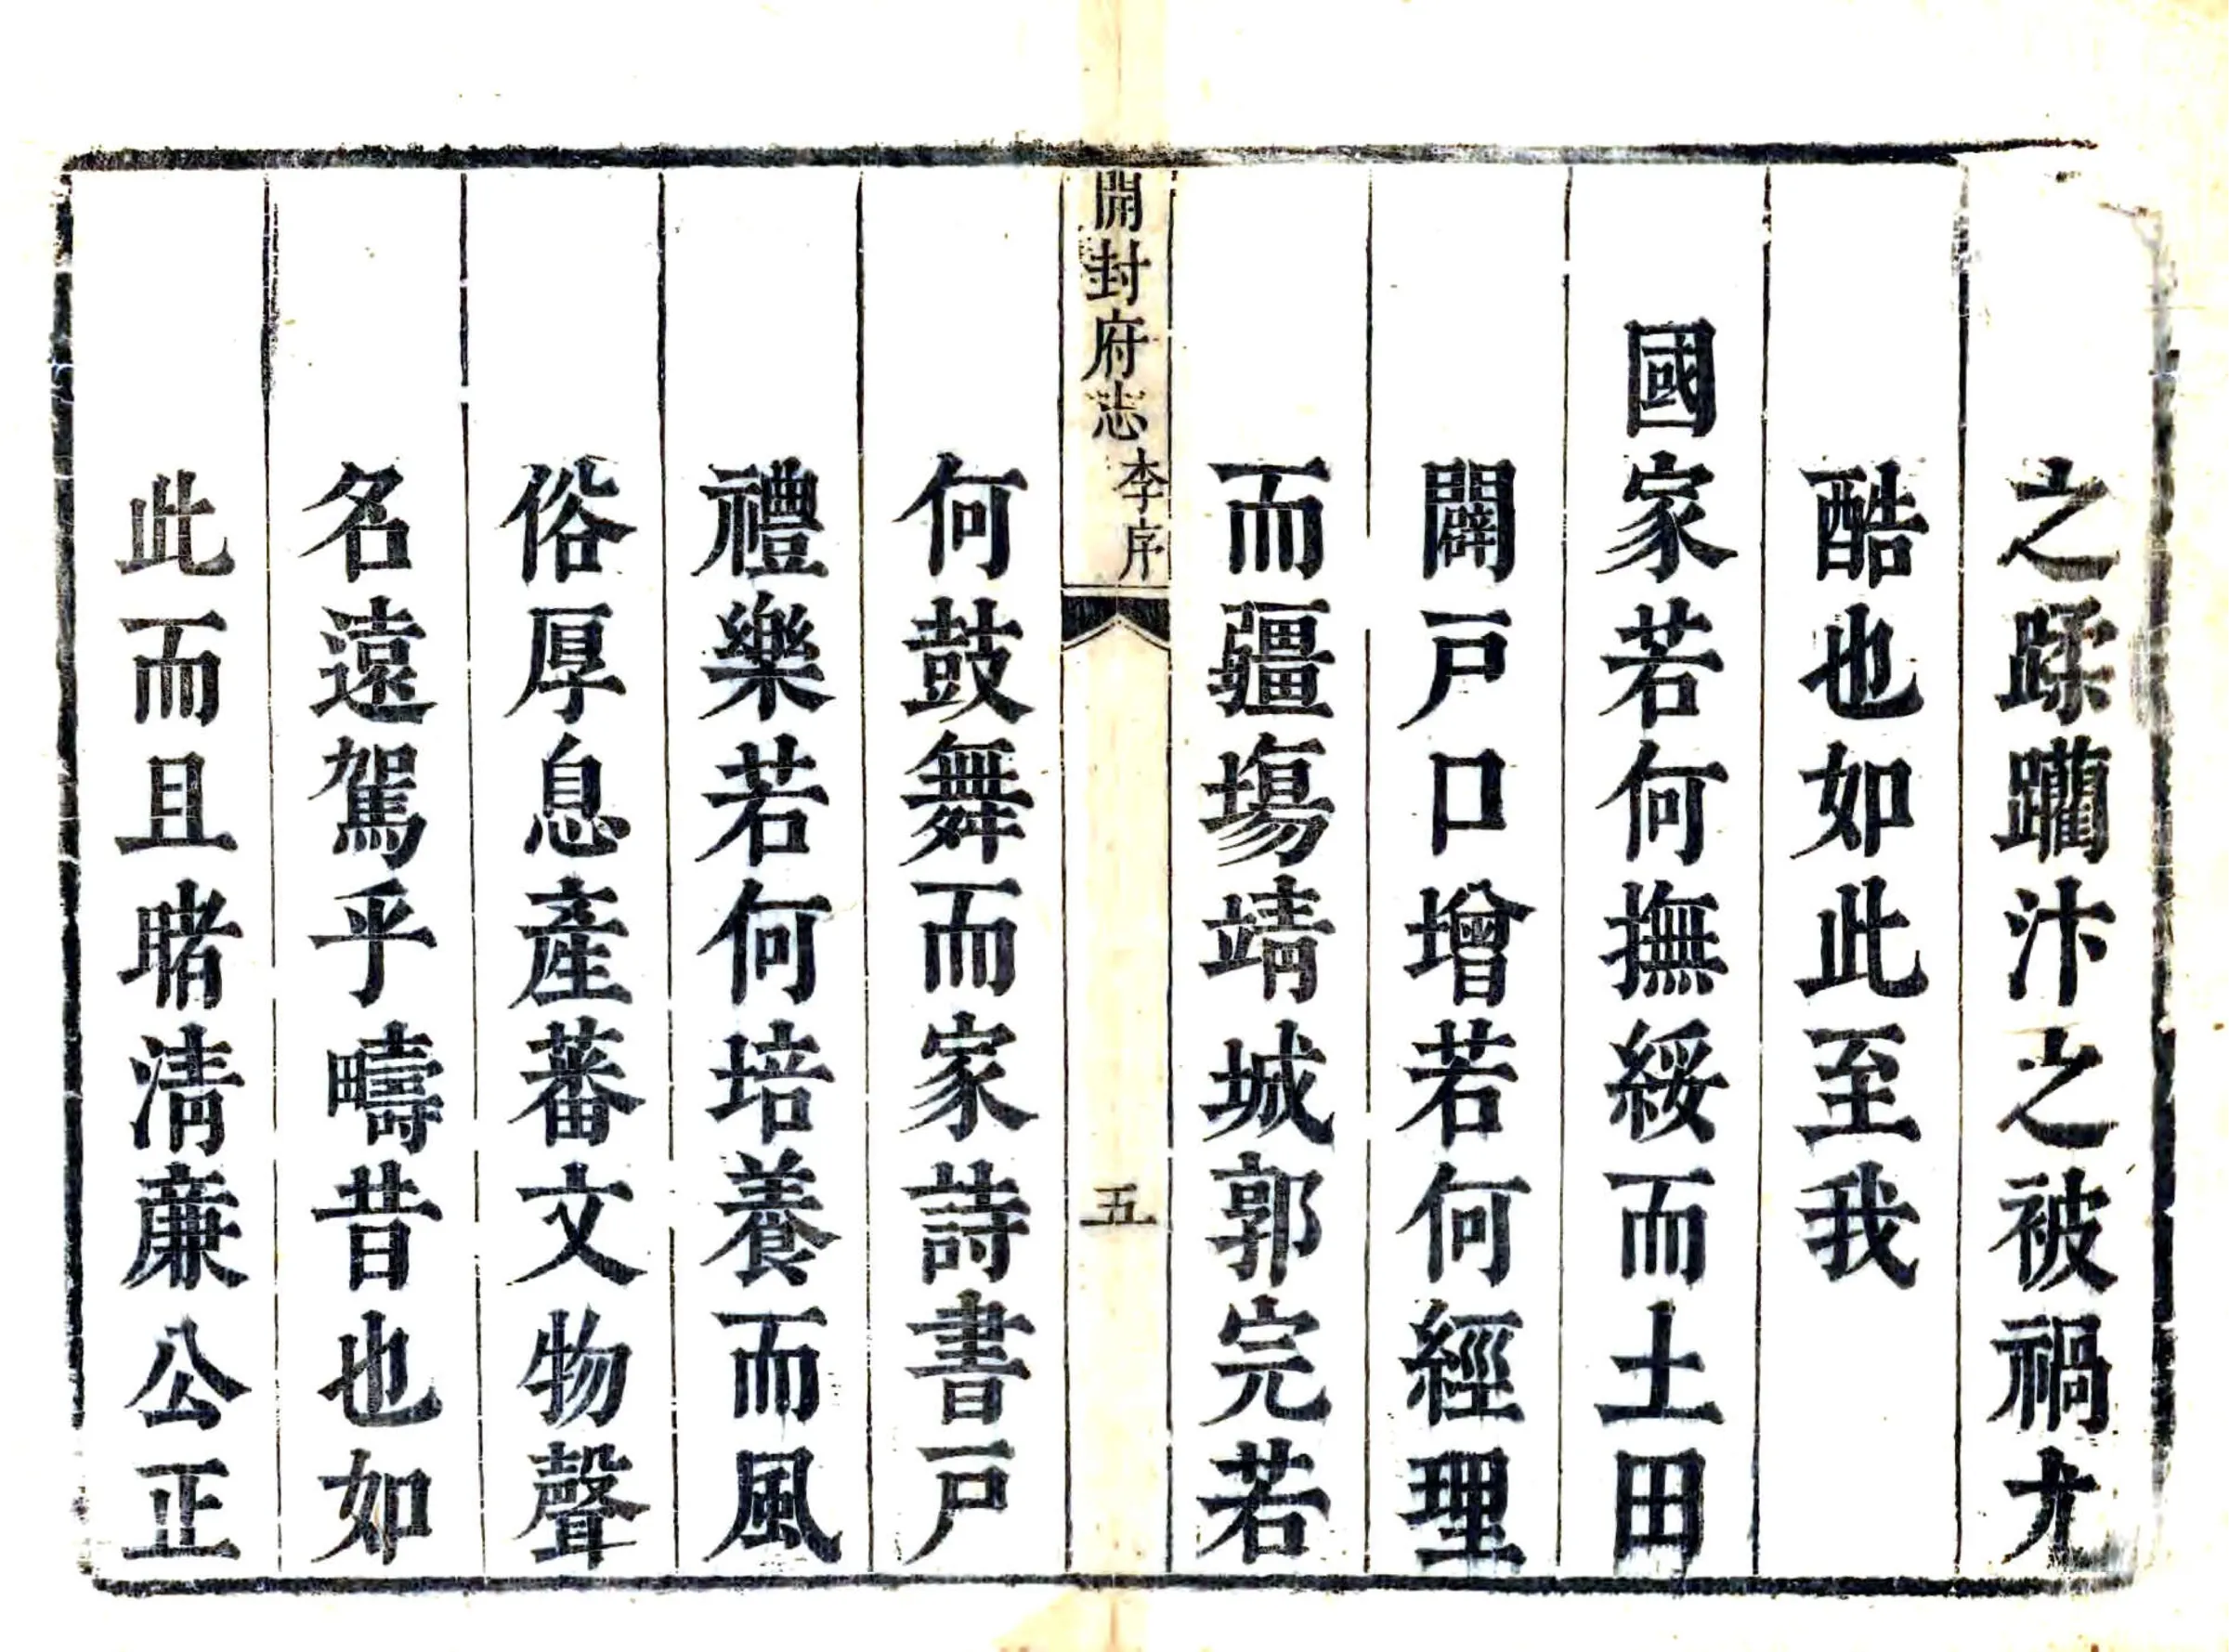 之蹂躪汴之被禍尤
酷也如此至我
國家若何撫綏而土田
闢戸口增若何經理
而疆塲靖城郭完若
開封府志 李序 五
何鼓舞而家詩書戸
禮樂若何培養而風
俗厚息產蕃文物聲
名遠駕乎疇昔也如
此而且睹淸廉公正